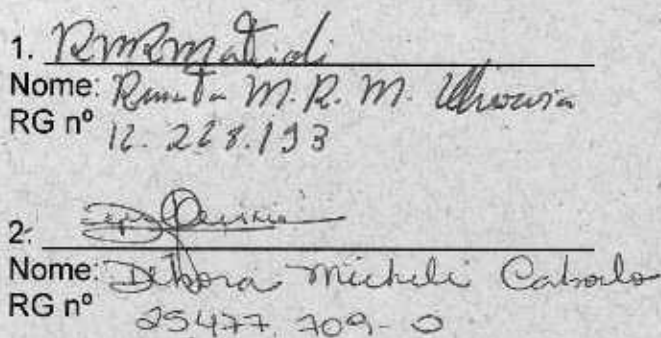 1.
Nome: Renata M. R. M. Oliveira
RG nº 12.228.193
2.
Nome: Debora Micheli Caborlo
RG nº 25477.709-0